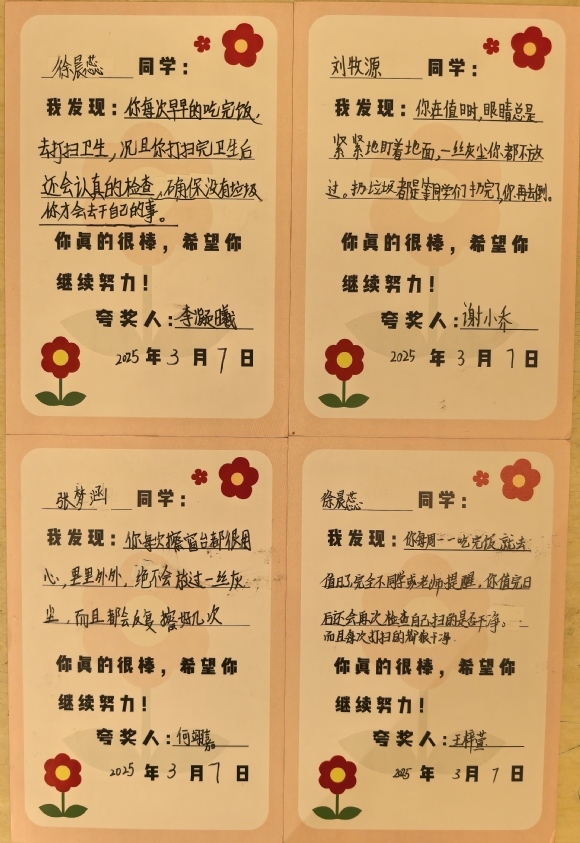 徐晨蕊 同学：
我发现：你每次早早的吃完饭，
去打扫卫生，况且你打扫完卫生后
还会认真的检查，确保没有垃圾
你才会去干自己的事。
你真的很棒，希望你
继续努力！
夸奖人：李凝曦
2025年3月7日
刘牧源 同学：
我发现：你在值日时，眼睛总是
紧紧地盯着地面，一丝灰尘你都不放
过。扔垃圾都是等同学们扔完了，你再去倒。
你真的很棒，希望你
继续努力！
夸奖人：谢小乔
2025年3月7日
张梦涵 同学：
我发现：你每次擦窗台都很用
心，里里外外，绝不会放过一丝灰
尘，而且都会反复擦好几次
你真的很棒，希望你
继续努力！
夸奖人：何翊嘉
2025年3月7日
徐晨蕊 同学：
我发现：你每周一一吃完饭就去
值日了，完全不同学或老师提醒，你值完日
后还会再次检查自己扫的是否干净。
而且每次打扫的都很干净
你真的很棒，希望你
继续努力！
夸奖人：王梓萱
2025年3月7日